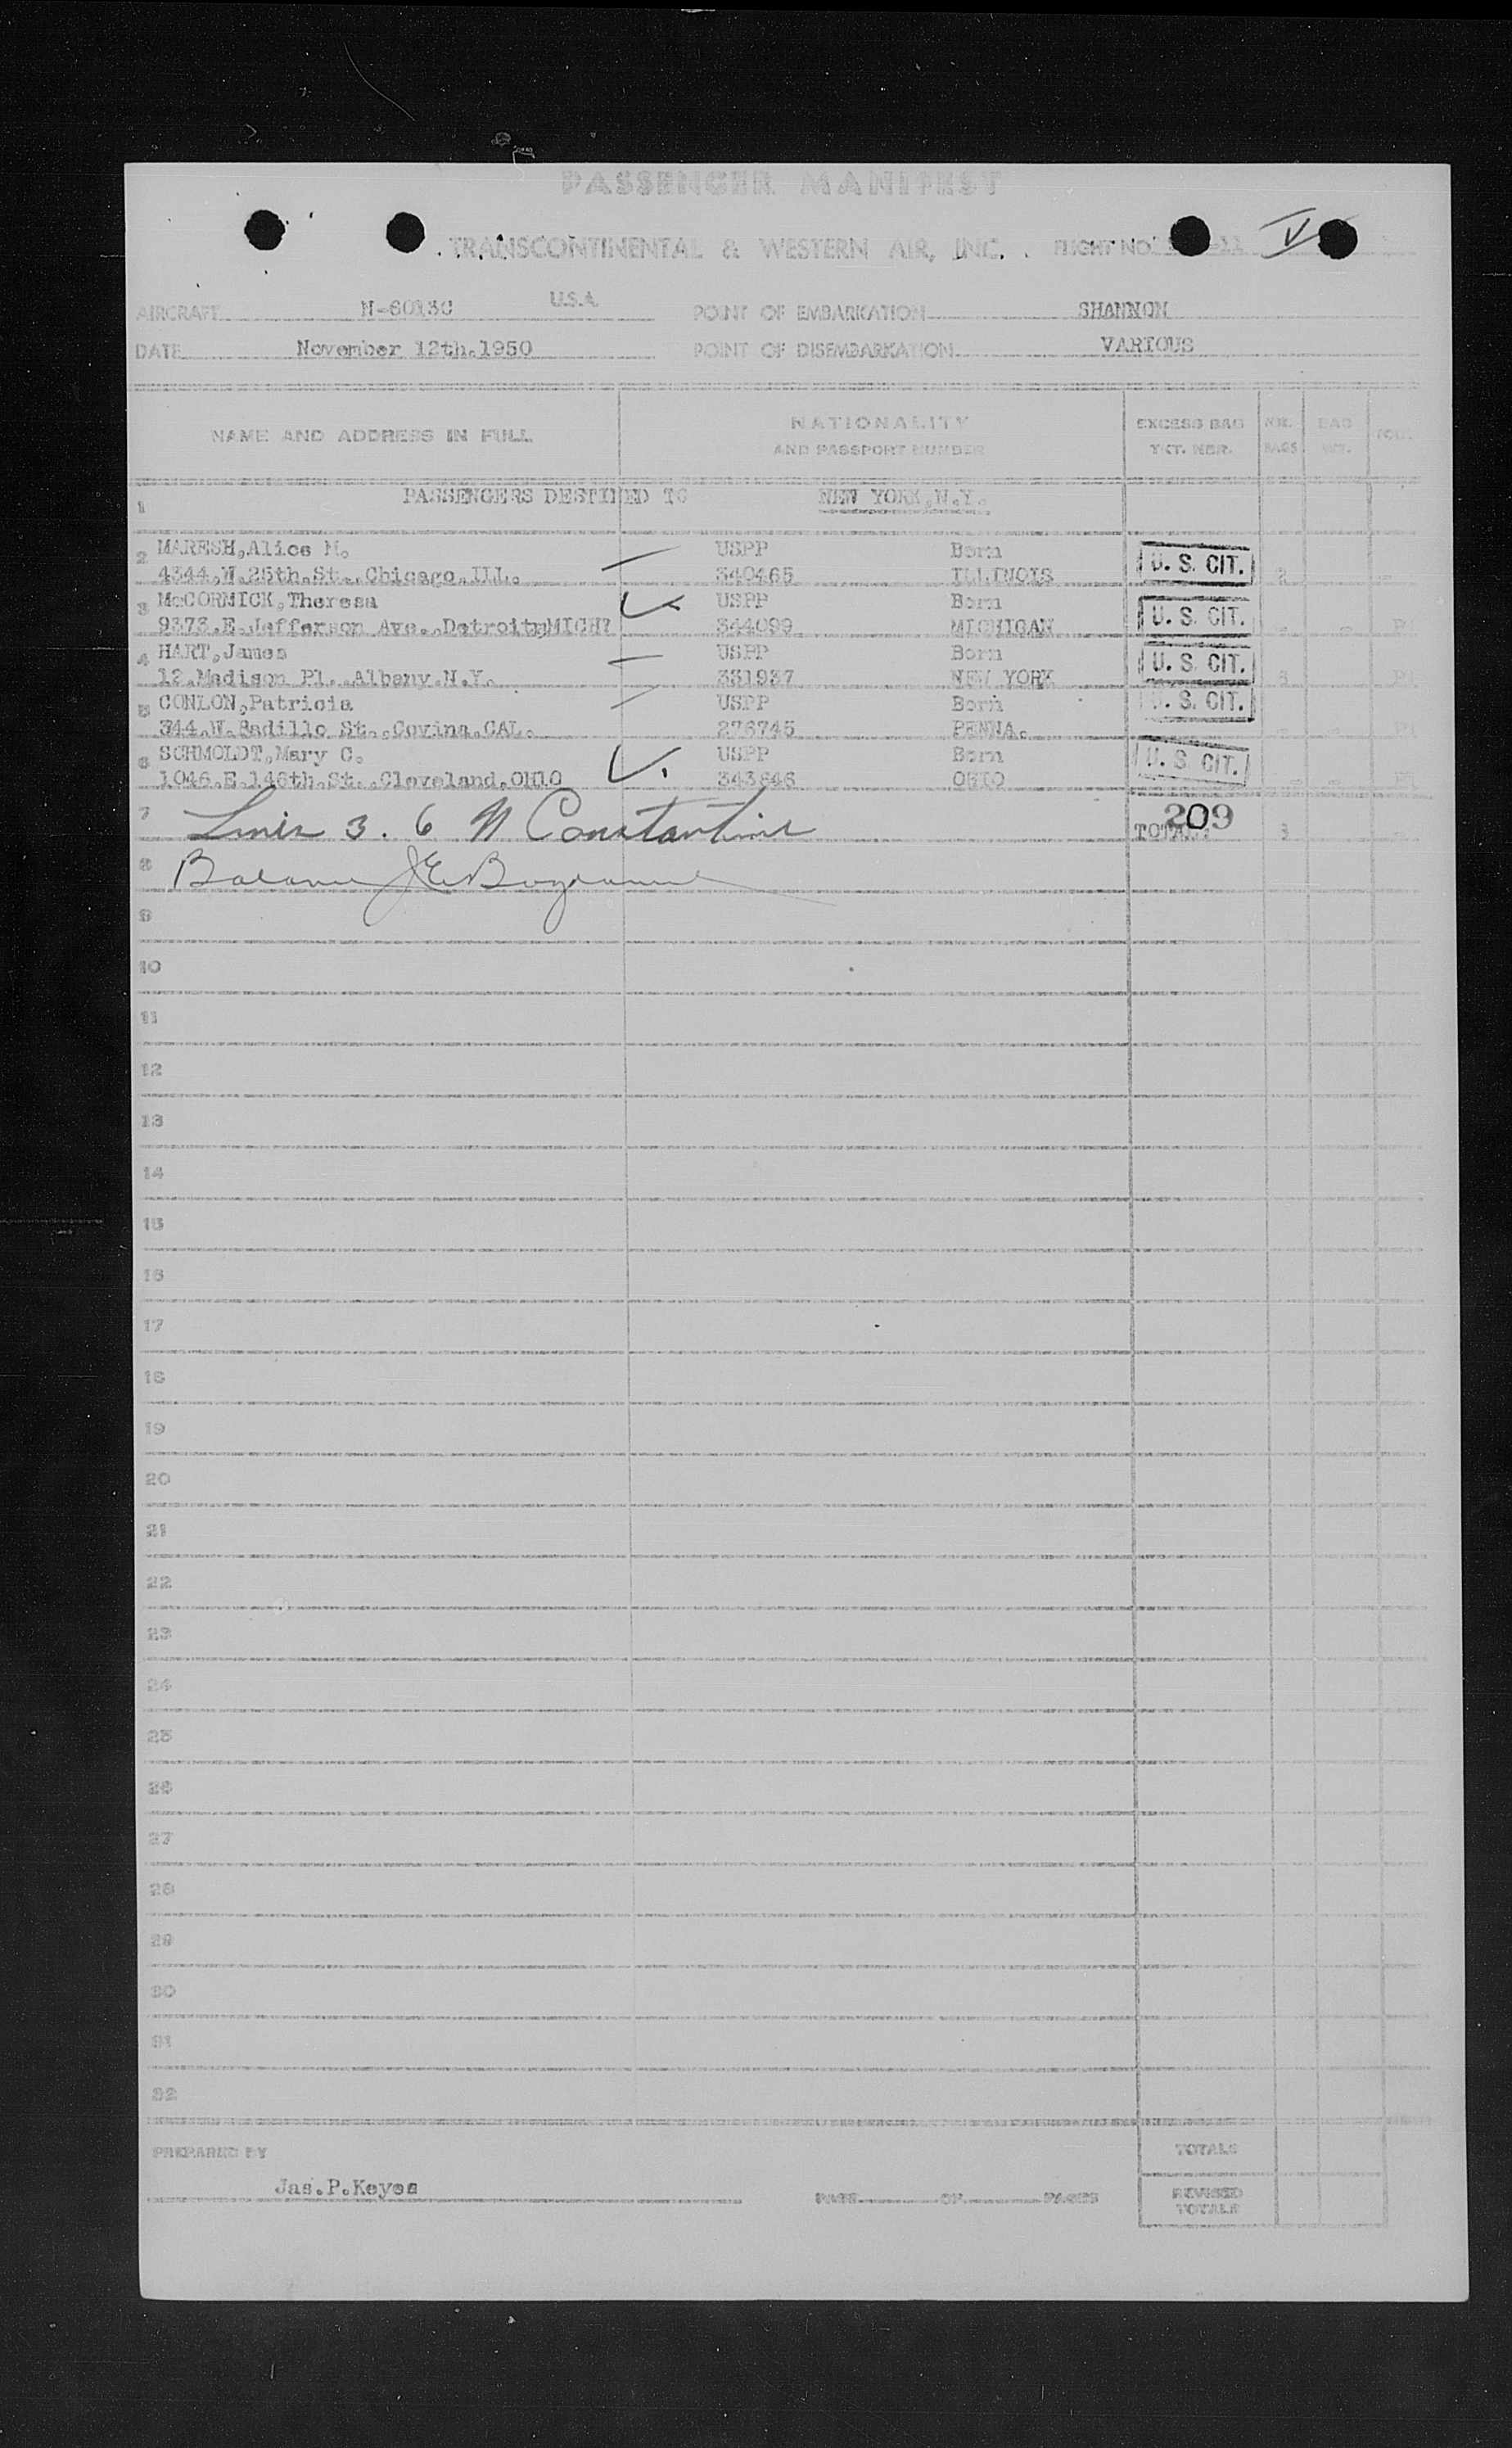 PASSENGER MANIFEST
TRANSCONTINENTAL & WESTERN AIR, INC. FLIGHT NO. -11 V
AIRCRAFT N-6013C U.S.A. POINT OF EMBARKATION SHANNON
DATE November 12th.1950 POINT OF DISEMBARKATION VARIOUS
NAME AND ADDRESS IN FULL NATIONALITY AND PASSPORT NUMBER EXCESS BAG TKT. NBR. NR. BAGS BAG WT.
1 PASSENGERS DESTINED TO NEW YORK,N.Y.
2 MARESH,Alice M. USPP Born U. S. CIT.
4344.W.25th.St..Chicago.ILL. 340465 ILLINOIS 2 -
3 McCORMICK,Theresa USPP Born U. S. CIT.
9373.E.Jefferson Ave..Detroit,MICH? 344099 MICHIGAN - -
4 HART,James USPP Born U. S. CIT.
12.Madison Pl..Albany.N.Y. 331937 NEW YORK
5 CONLON,Patricia USPP Born U. S. CIT.
344.W.Badillo St..Covina.CAL. 276745 PENNA. - -
6 SCHMOLDT,Mary C. USPP Born U. S. CIT.
1046.E.146th.St..Cleveland.OHIO 343646 OHIO - -
7 Lines 3. 6 N Constantine TOTAL: 209
8 Balance J E
9
10
11
12
13
14
15
16
17
18
19
20
21
22
23
24
25
26
27
28
29
30
31
32
PREPARED BY TOTALS
Jas.P.Keyes PAGE OF PAGES REVISED TOTALS